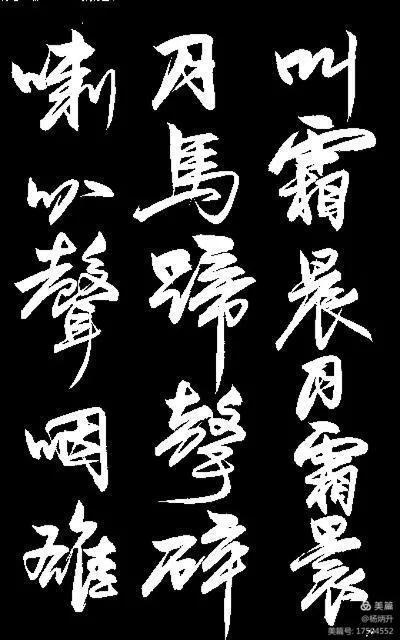 叫霜晨月霜晨
月馬蹄聲碎
喇叭聲咽雄
美篇
@杨炳升
美篇号: